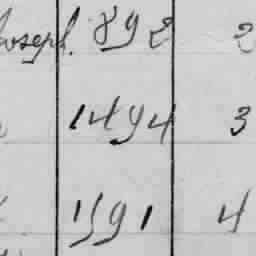 Joseph. 892 2
1494 3
1591 4